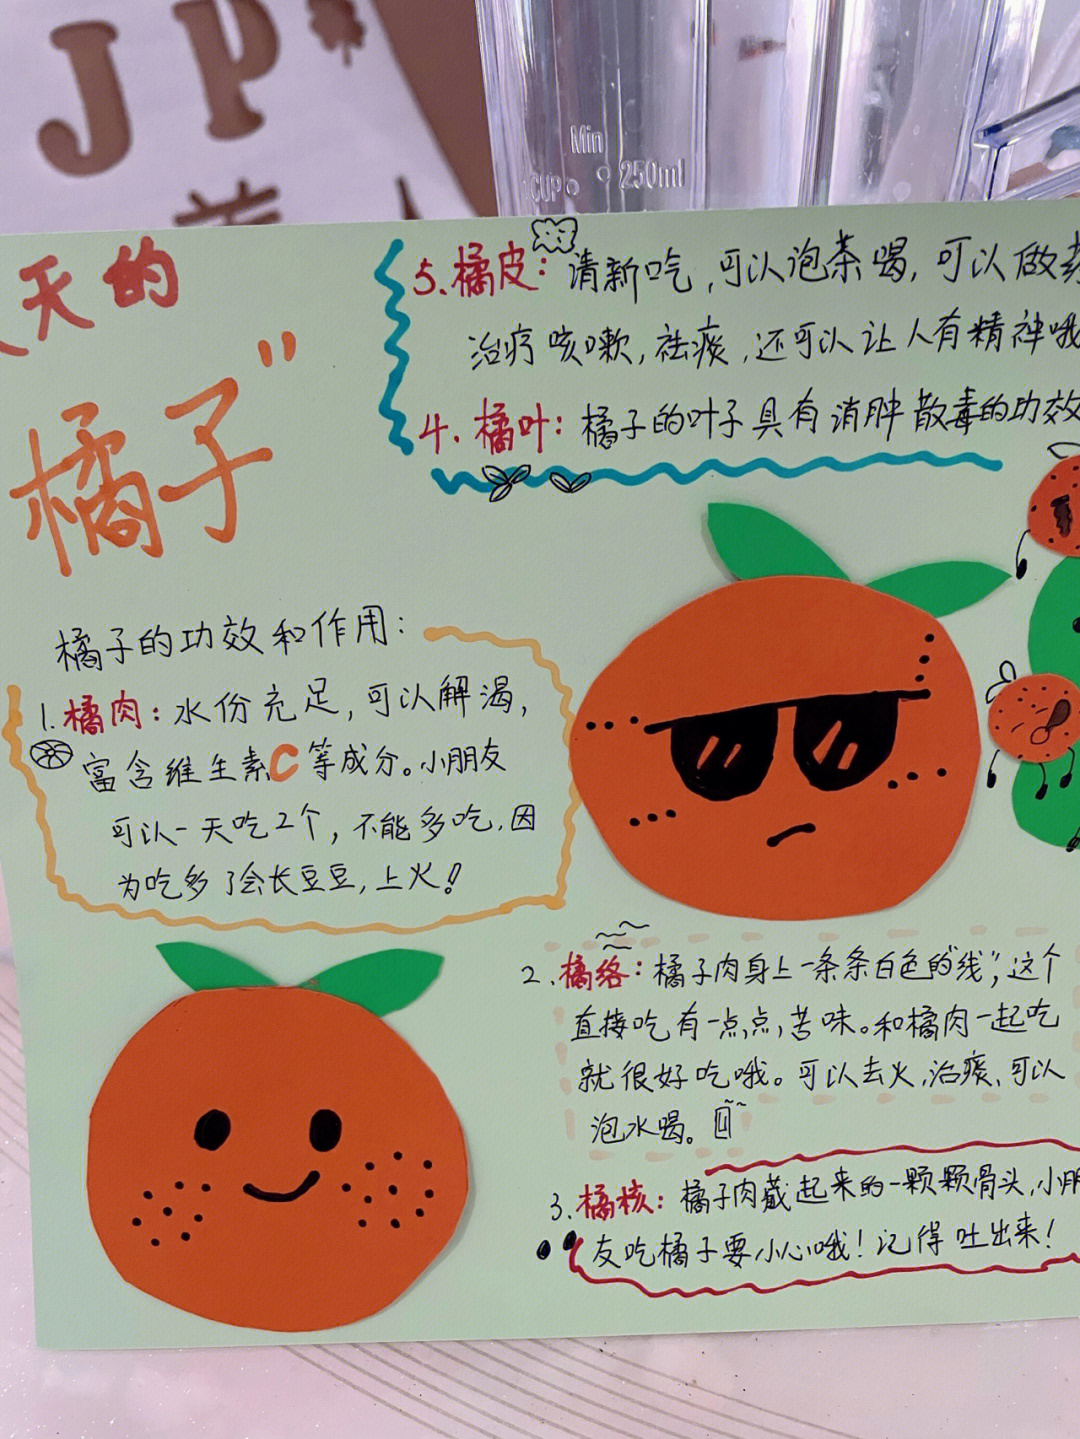 JP
Min
CUP 250ml
天的
橘子"
5.橘皮：清新吃，可以泡茶喝，可以做
治疗咳嗽，祛痰，还可以让人有精神哦
4.橘叶：橘子的叶子具有消肿散毒的功效
橘子的功效和作用：
1.橘肉：水份充足，可以解渴，
富含维生素C等成分。小朋友
可以一天吃2个，不能多吃，因
为吃多了会长豆豆，上火！
2.橘络：橘子肉身上一条条白色的“线”，这个
直接吃有一点点苦味。和橘肉一起吃
就很好吃哦。可以去火，治痰、可以
泡水喝。
3.橘核：橘子肉藏起来的一颗颗骨头，小朋
友吃橘子要小心哦！记得吐出来！